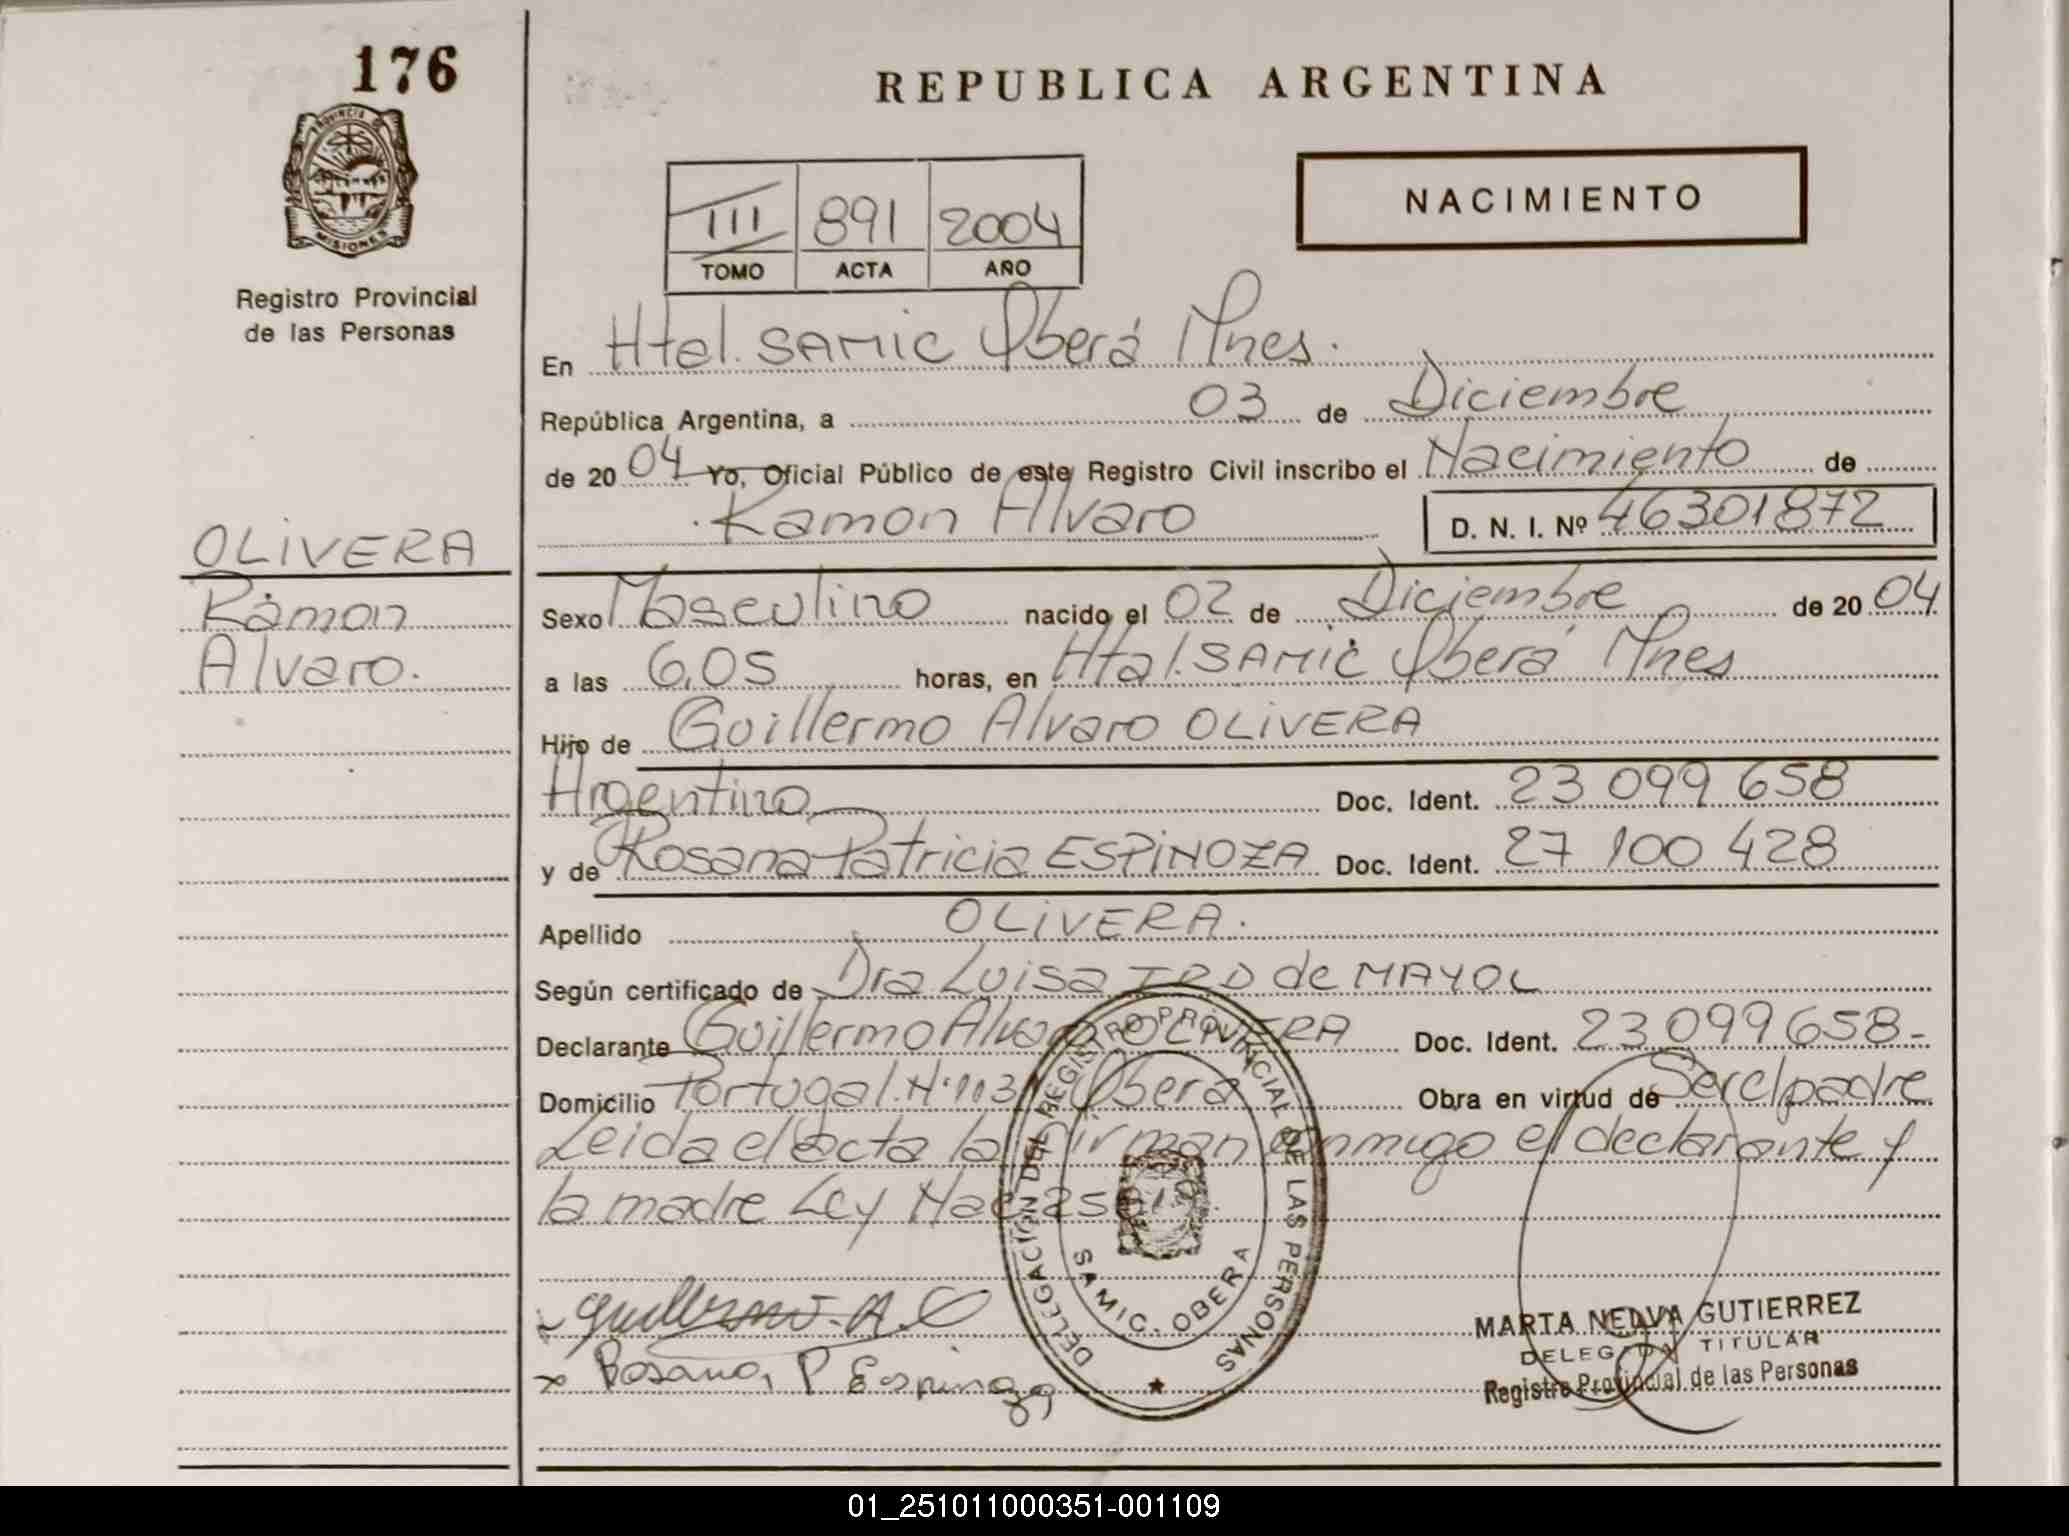 176
PROVINCIA DE
MISIONES
Registro Provincial
de las Personas
OLIVERA
Ramon
Alvaro.
REPUBLICA ARGENTINA
III 891 2004
TOMO ACTA AÑO
NACIMIENTO
En Htal. SAMIC Oberá Mnes.
República Argentina, a 03 de Diciembre
de 20 04 Yo, Oficial Público de este Registro Civil inscribo el Nacimiento de
Ramon Alvaro D. N. I. Nº 46301872
Sexo Masculino nacido el 02 de Diciembre de 20 04
a las 6,05 horas, en Htal. SAMIC Oberá Mnes
Hijo de Guillermo Alvaro OLIVERA
Argentino Doc. Ident. 23 099 658
y de Rosana Patricia ESPINOZA Doc. Ident. 27 100 428
Apellido OLIVERA.
Según certificado de Dra Luisa de MAYOL
Declarante Guillermo Alvaro OLIVERA Doc. Ident. 23 099 658-
Domicilio Portugal. N° 113 Oberá Obra en virtud de Ser el padre
Leida el acta la firman conmigo el declarante y
la madre Ley Nac
Guillermo. A. O
x Rosana, P Espinoza
DELEGACION DEL REGISTRO PROVINCIAL DE LAS PERSONAS
SAMIC. OBERA
MARTA NELVA GUTIERREZ
DELEGADA TITULAR
Registro Provincial de las Personas
01_251011000351-001109